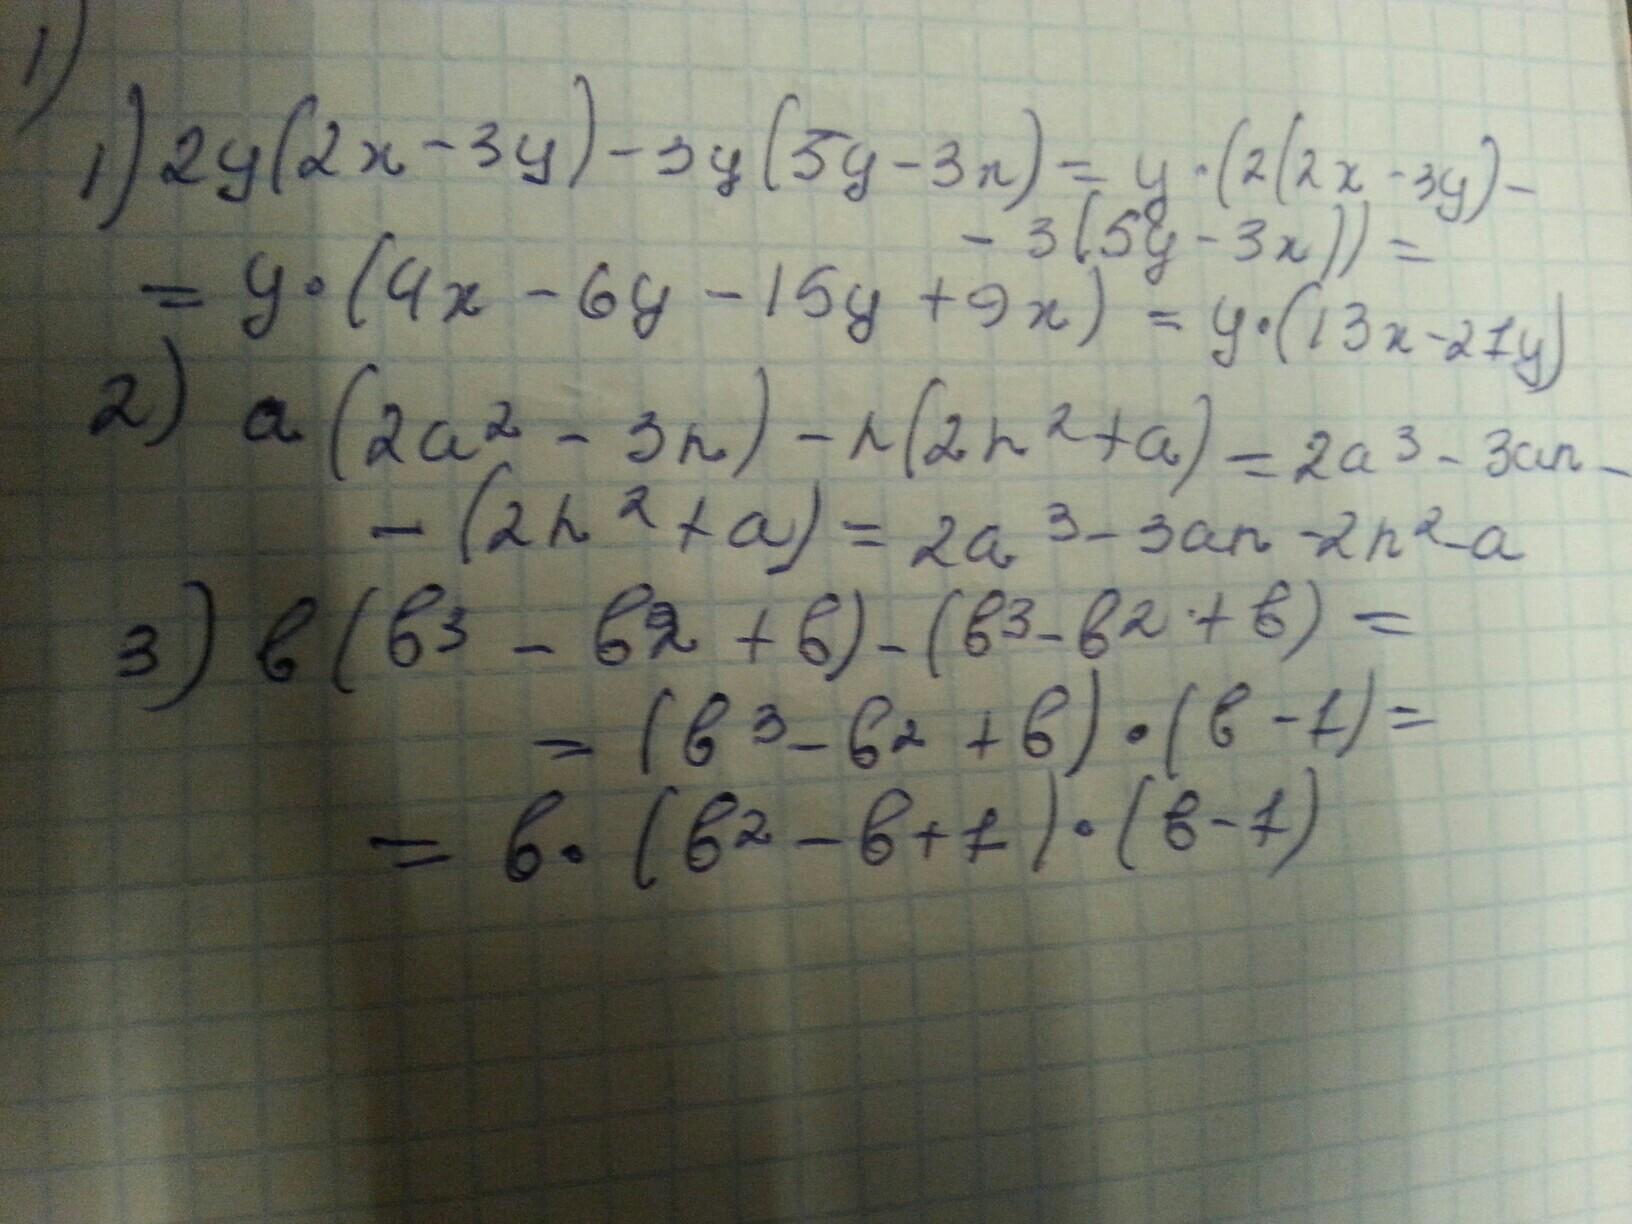 1)
1) 2y(2x-3y)-3y(5y-3x)=y·(2(2x-3y)-
-3(5y-3x))=
=y·(4x-6y-15y+9x)=y·(13x-21y)
2) a(2a²-3n)-n(2n²+a)=2a³-3an-
-(2n²+a)=2a³-3an-2n²-a
3) в(в³-в²+в)-(в³-в²+в)=
=(в³-в²+в)·(в-1)=
=в·(в²-в+1)·(в-1)